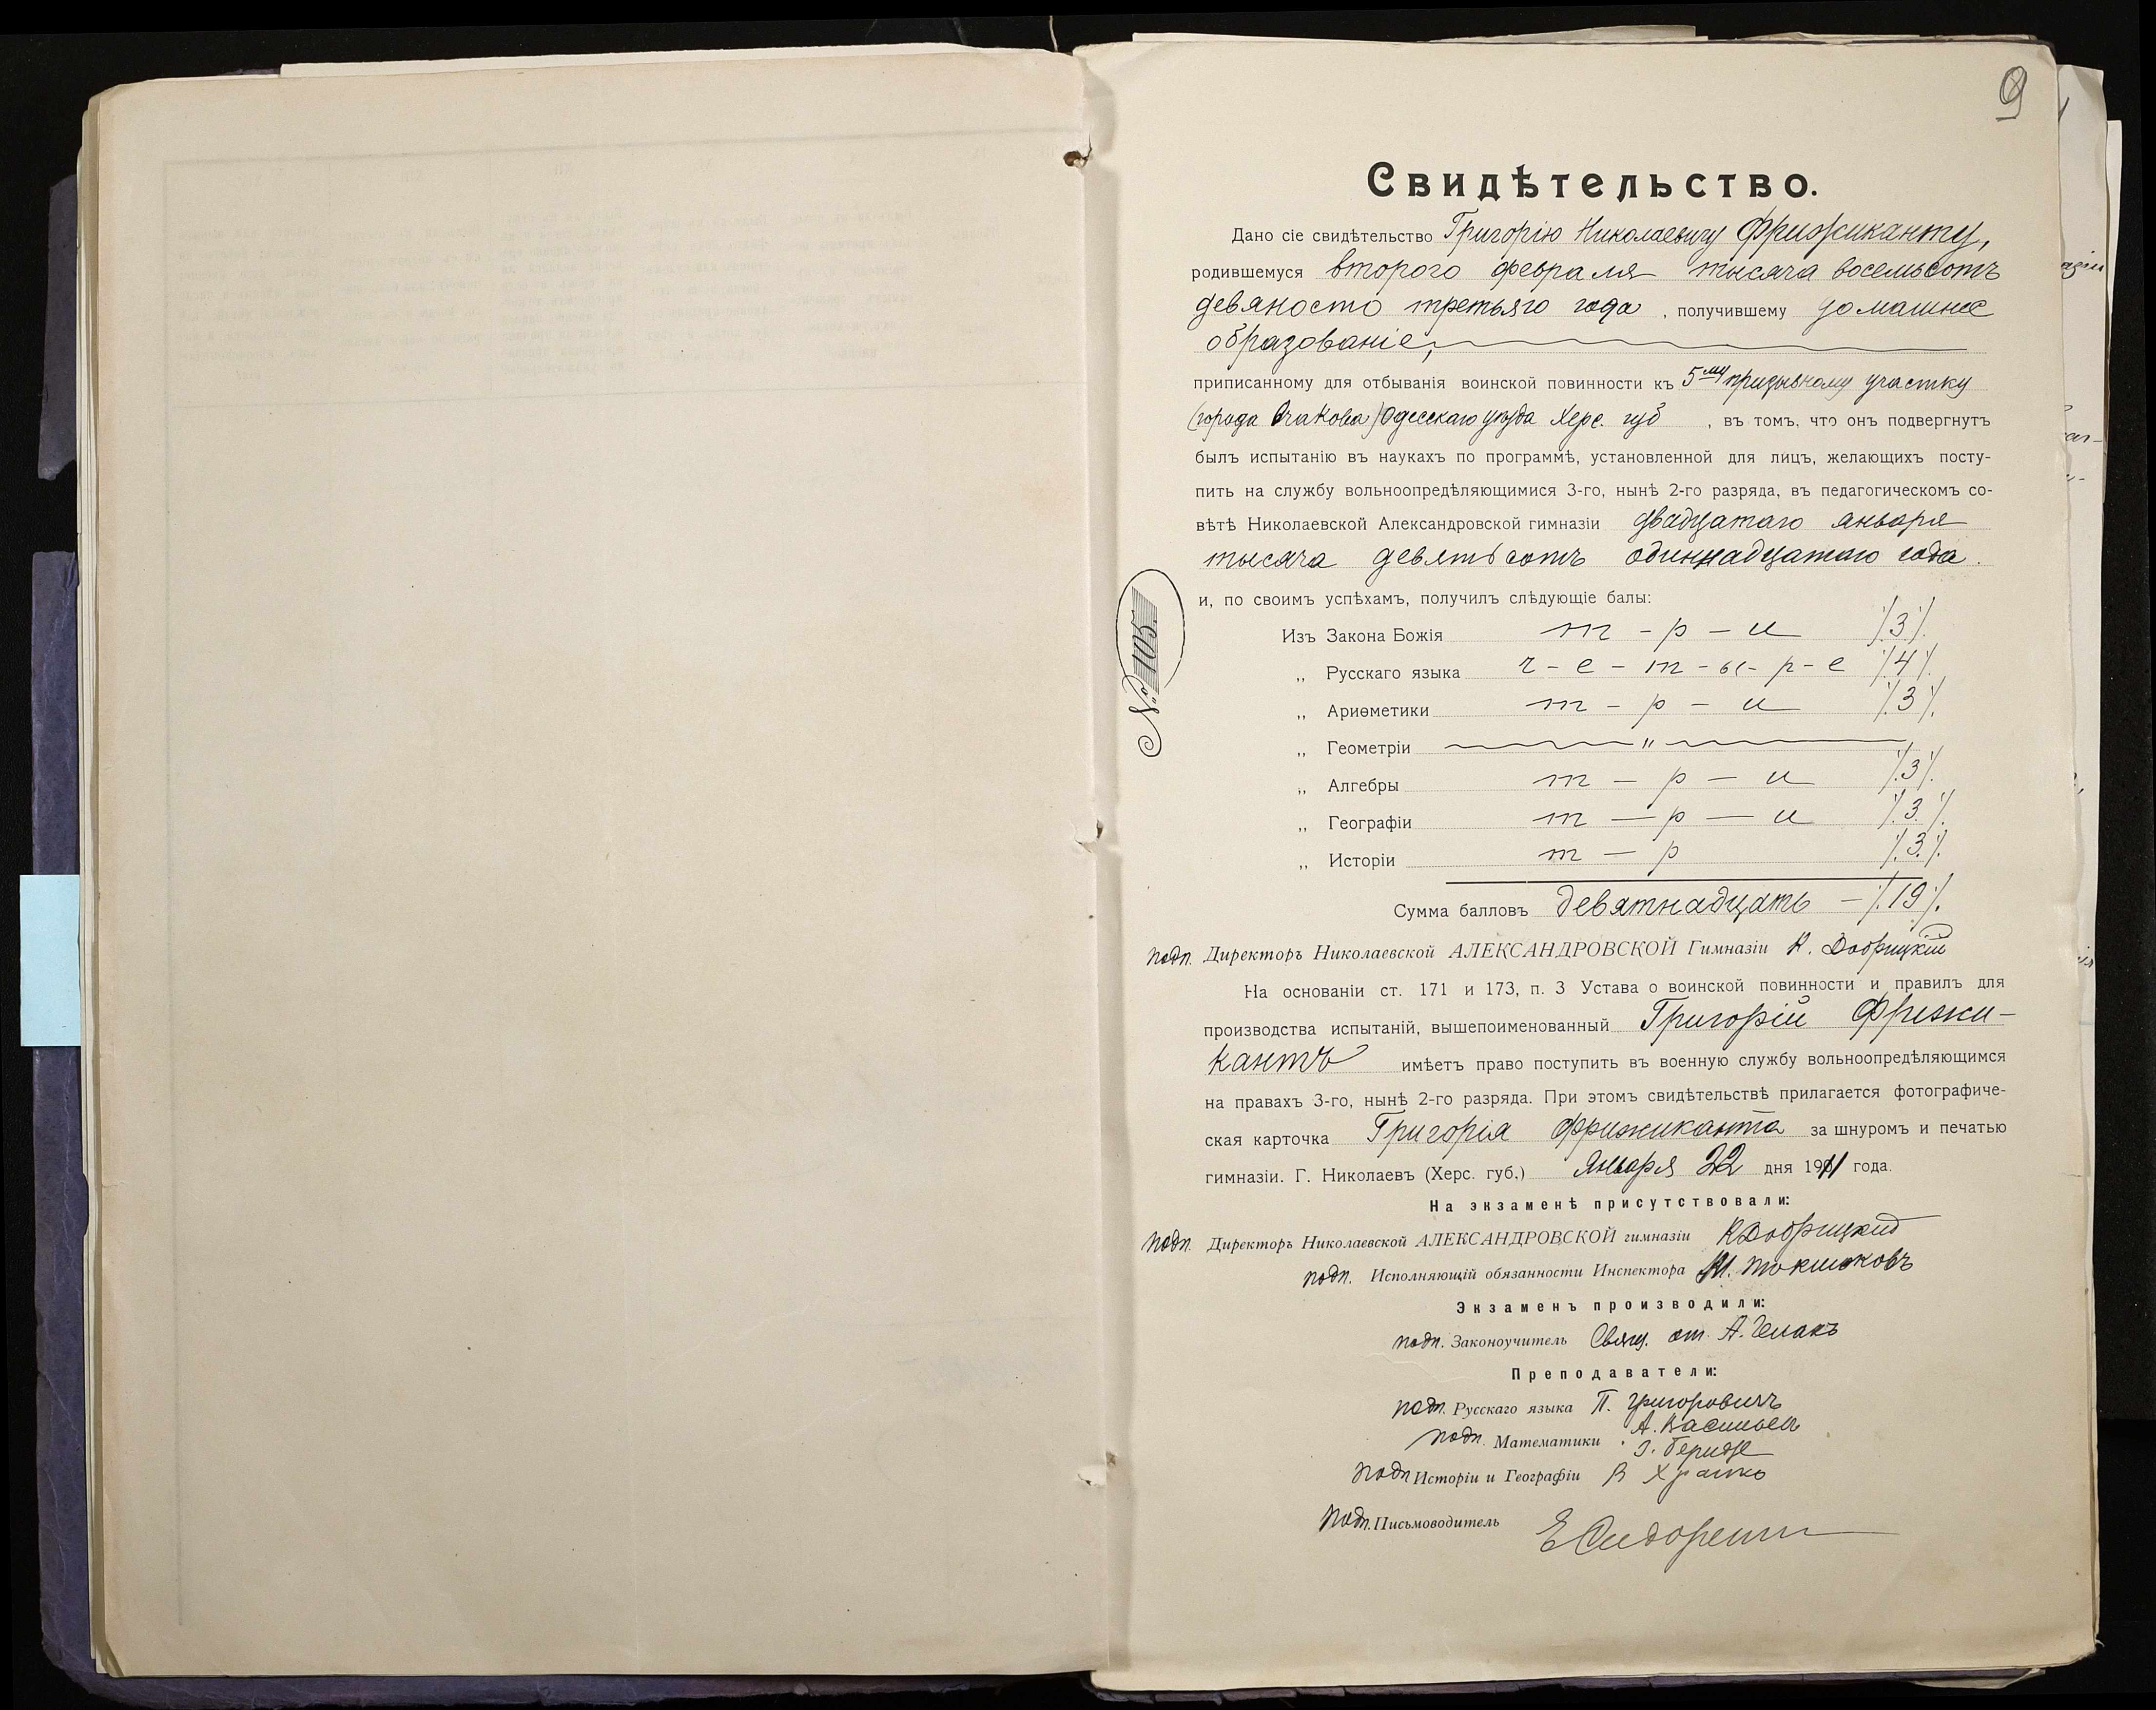 9
Свидѣтельство.
Дано сіе свидѣтельство Григорію Николаевичу Фрижиканту,
родившемуся второго февраля тысяча восемьсотъ
девяносто третьяго года, получившему домашнее
образованіе,
приписанному для отбыванія воинской повинности къ 5му призывному участку
(города Очакова) Одесскаго уѣзда Херс. губ, въ томъ, что онъ подвергнутъ
былъ испытанію въ наукахъ по программѣ, установленной для лицъ, желающихъ посту-
пить на службу вольноопредѣляющимися 3-го, нынѣ 2-го разряда, въ педагогическомъ со-
вѣтѣ Николаевской Александровской гимназіи двадцатаго января
тысяча девятьсотъ одиннадцатаго года.
и, по своимъ успѣхамъ, получилъ слѣдующіе балы:
№ 105.
Изъ Закона Божія т - р - и /.3/.
„ Русскаго языка ч - е - т - ы - р - е /.4/.
„ Ариѳметики т - р - и /.3/.
„ Геометріи "
„ Алгебры т - р - и /.3/.
„ Географіи т - р - и /.3./.
„ Исторіи т - р /.3./.
Сумма балловъ девятнадцать - /.19/.
подп. Директоръ Николаевской АЛЕКСАНДРОВСКОЙ Гимназіи К. Добрицкій
На основаніи ст. 171 и 173, п. 3 Устава о воинской повинности и правилъ для
производства испытаній, вышепоименованный Григорій Фрижи-
кантъ имѣетъ право поступить въ военную службу вольноопредѣляющимся
на правахъ 3-го, нынѣ 2-го разряда. При этомъ свидѣтельствѣ прилагается фотографиче-
ская карточка Григорія Фрижиканта за шнуромъ и печатью
гимназіи. Г. Николаевъ (Херс. губ.) Января 22 дня 1911 года.
На экзаменѣ присутствовали:
подп. Директоръ Николаевской АЛЕКСАНДРОВСКОЙ гимназіи К Добрицкий
подп. Исполняющій обязанности Инспектора
Экзаменъ производили:
подп. Законоучитель Свящ. от. А.
Преподаватели:
подп. Русскаго языка П. Григоровичъ
подп. Математики А.
подп Исторіи и Географіи В
подп. Письмоводитель Е Сидорен